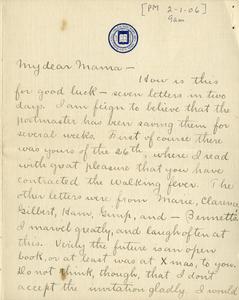 [PM 2-1-06]
9am
My dear Mama —
How is this
for good luck — seven letters in two
days. I am feign to believe that the
postmaster has been saving them for
several weeks. First of course there
was yours of the 26th, where I read
with great pleasure that you have
contracted the walking fever. The
other letters were from Marie, Clarence,
Gilbert, Ham, Gimp, and — Bennetta.
I marvel greatly, and laugh often at
this. Verily the future is an open
book, or at least was at Xmas, to you.
Do not think, though, that I don't
accept the invitation gladly. I would